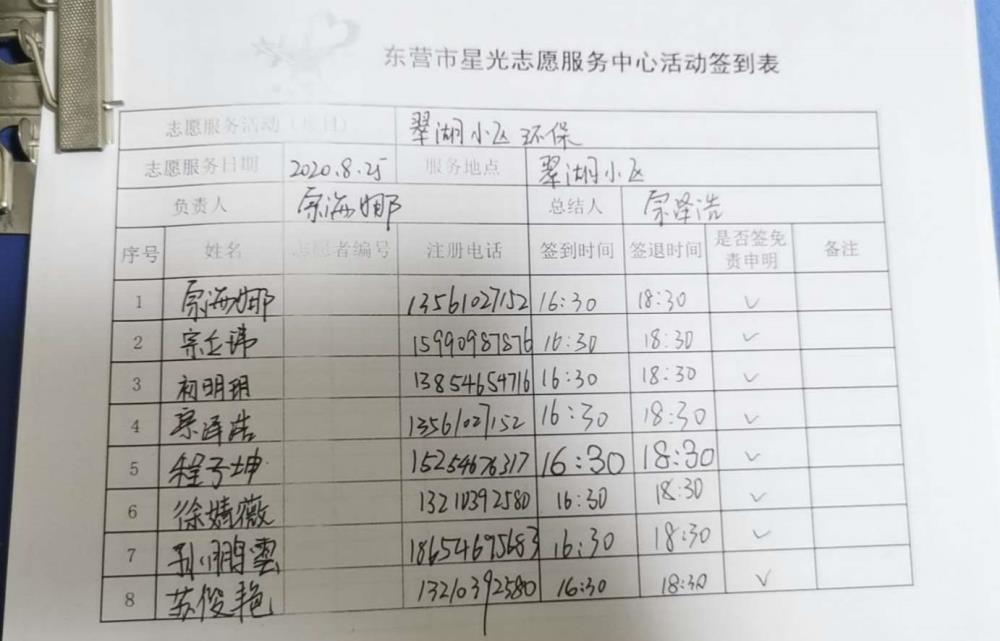 东营市星光志愿服务中心活动签到表
志愿服务活动（项目） 翠湖小区环保
志愿服务日期 2020.8.25 服务地点 翠湖小区
负责人 宗海娜 总结人 宗泽浩
序号 姓名 志愿者编号 注册电话 签到时间 签退时间 是否签免责申明 备注
1 宗海娜 13561027152 16:30 18:30 ✓
2 15990987876 16:30 18:30 ✓
3 初明玥 13854654716 16:30 18:30 ✓
4 宗泽浩 13561027152 16:30 18:30 ✓
5 程子坤 15254676317 16:30 18:30 ✓
6 徐婧薇 13210392580 16:30 18:30 ✓
7 18654695683 16:30 18:30 ✓
8 苏俊艳 13210392580 16:30 18:30 ✓